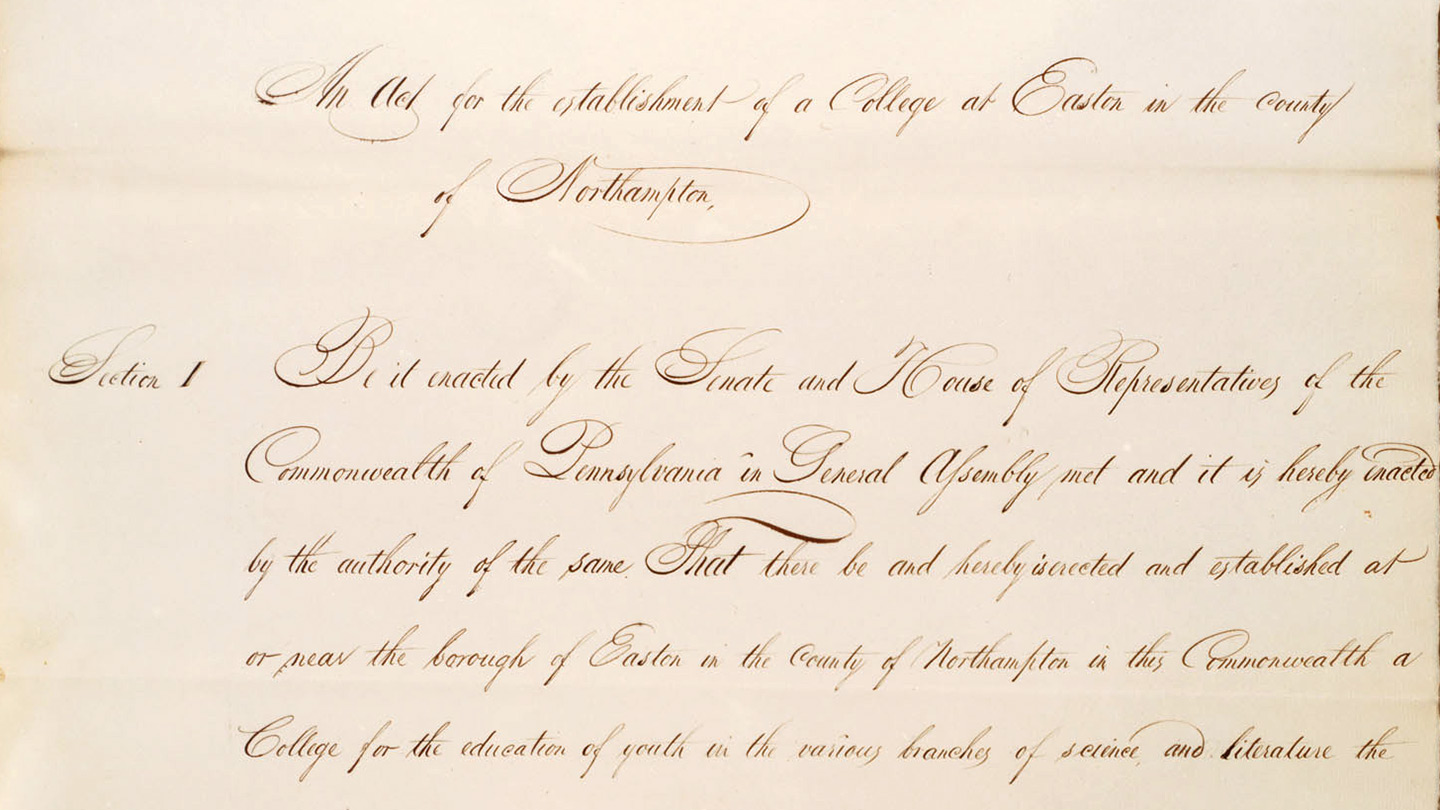 An Act for the establishment of a College at Easton in the county
of Northampton,
Section 1 Be it enacted by the Senate and House of Representatives of the
Commonwealth of Pennsylvania in General Assembly met and it is hereby enacted
by the authority of the same. That there be and hereby is erected and established at
or near the borough of Easton in the county of Northampton in this Commonwealth a
College for the education of youth in the various branches of science, and literature the